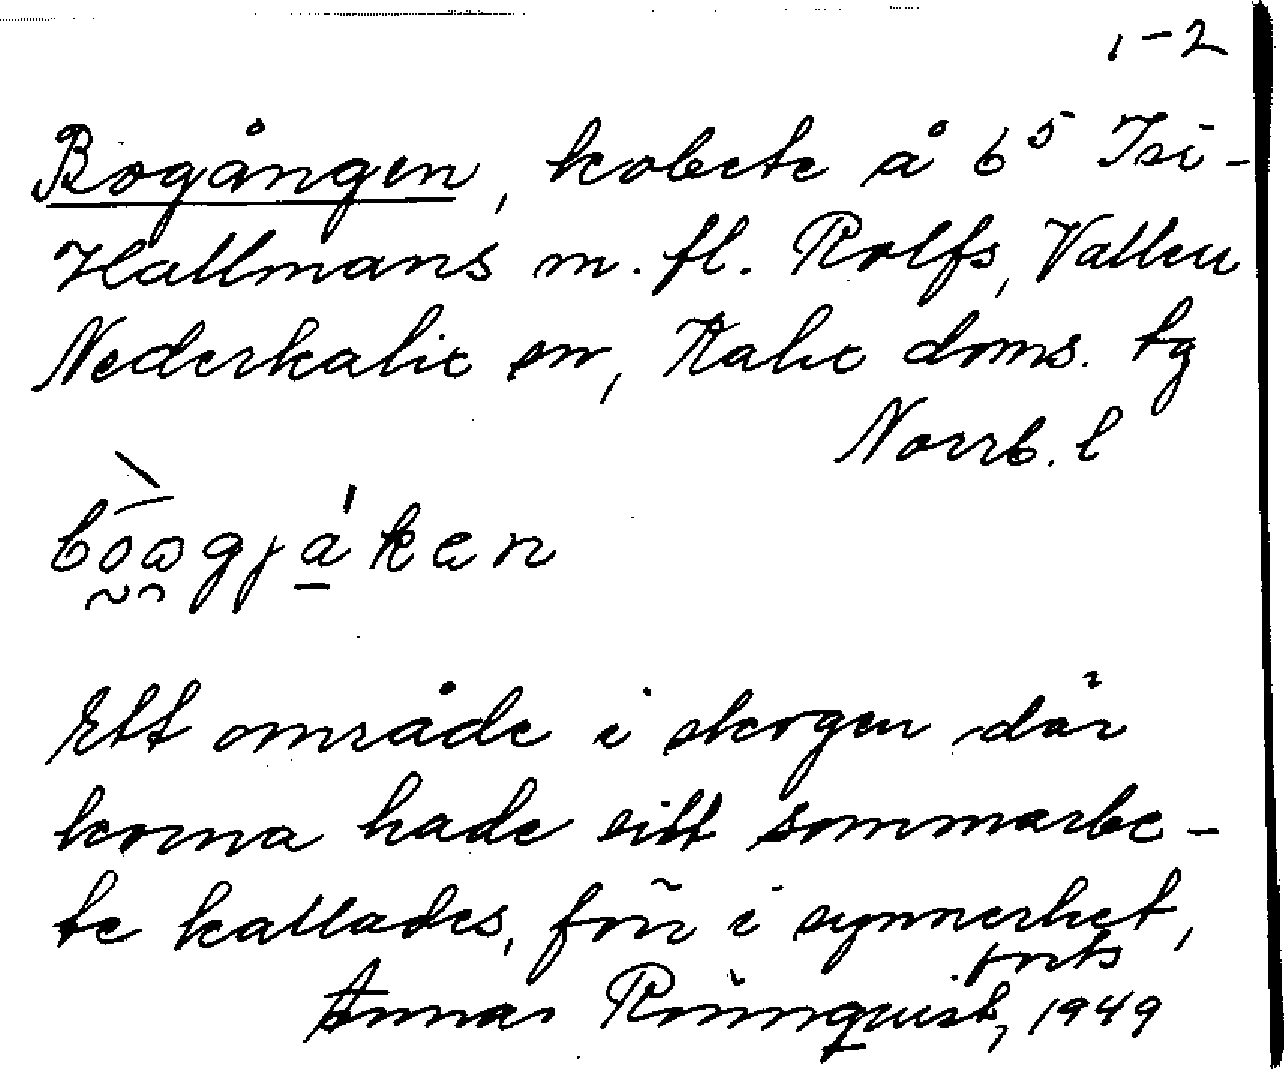 1-2
Bogången, kobete å 6⁵ Isi-
Hallmans m. fl. Rolfs, Vallen
Nederkalix sn, Kalix doms. tg
Norrb. l
Ett område i skogen där
korna hade sitt sommarbe-
te kallades, förr i synnerhet,
forts
Anna Rönnquist, 1949